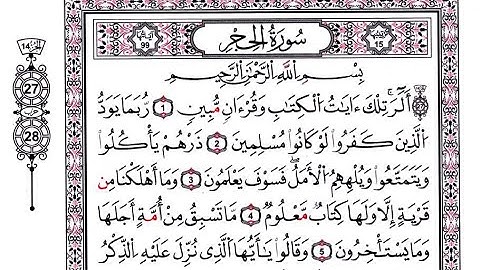 الجزء 14
آياتها 99
سُورَةُ الحِجْرِ
ترتيبها 15
27
28
بِسْمِ اللَّهِ الرَّحْمَٰنِ الرَّحِيمِ
الٓر ۚ تِلْكَ ءَايَٰتُ ٱلْكِتَٰبِ وَقُرْءَانٍ مُّبِينٍ 1 رُّبَمَا يَوَدُّ
ٱلَّذِينَ كَفَرُوا۟ لَوْ كَانُوا۟ مُسْلِمِينَ 2 ذَرْهُمْ يَأْكُلُوا۟
وَيَتَمَتَّعُوا۟ وَيُلْهِهِمُ ٱلْأَمَلُ ۖ فَسَوْفَ يَعْلَمُونَ 3 وَمَآ أَهْلَكْنَا مِن
قَرْيَةٍ إِلَّا وَلَهَا كِتَابٌ مَّعْلُومٌ 4 مَّا تَسْبِقُ مِنْ أُمَّةٍ أَجَلَهَا
وَمَا يَسْتَـْٔخِرُونَ 5 وَقَالُوا۟ يَٰٓأَيُّهَا ٱلَّذِى نُزِّلَ عَلَيْهِ ٱلذِّكْرُ